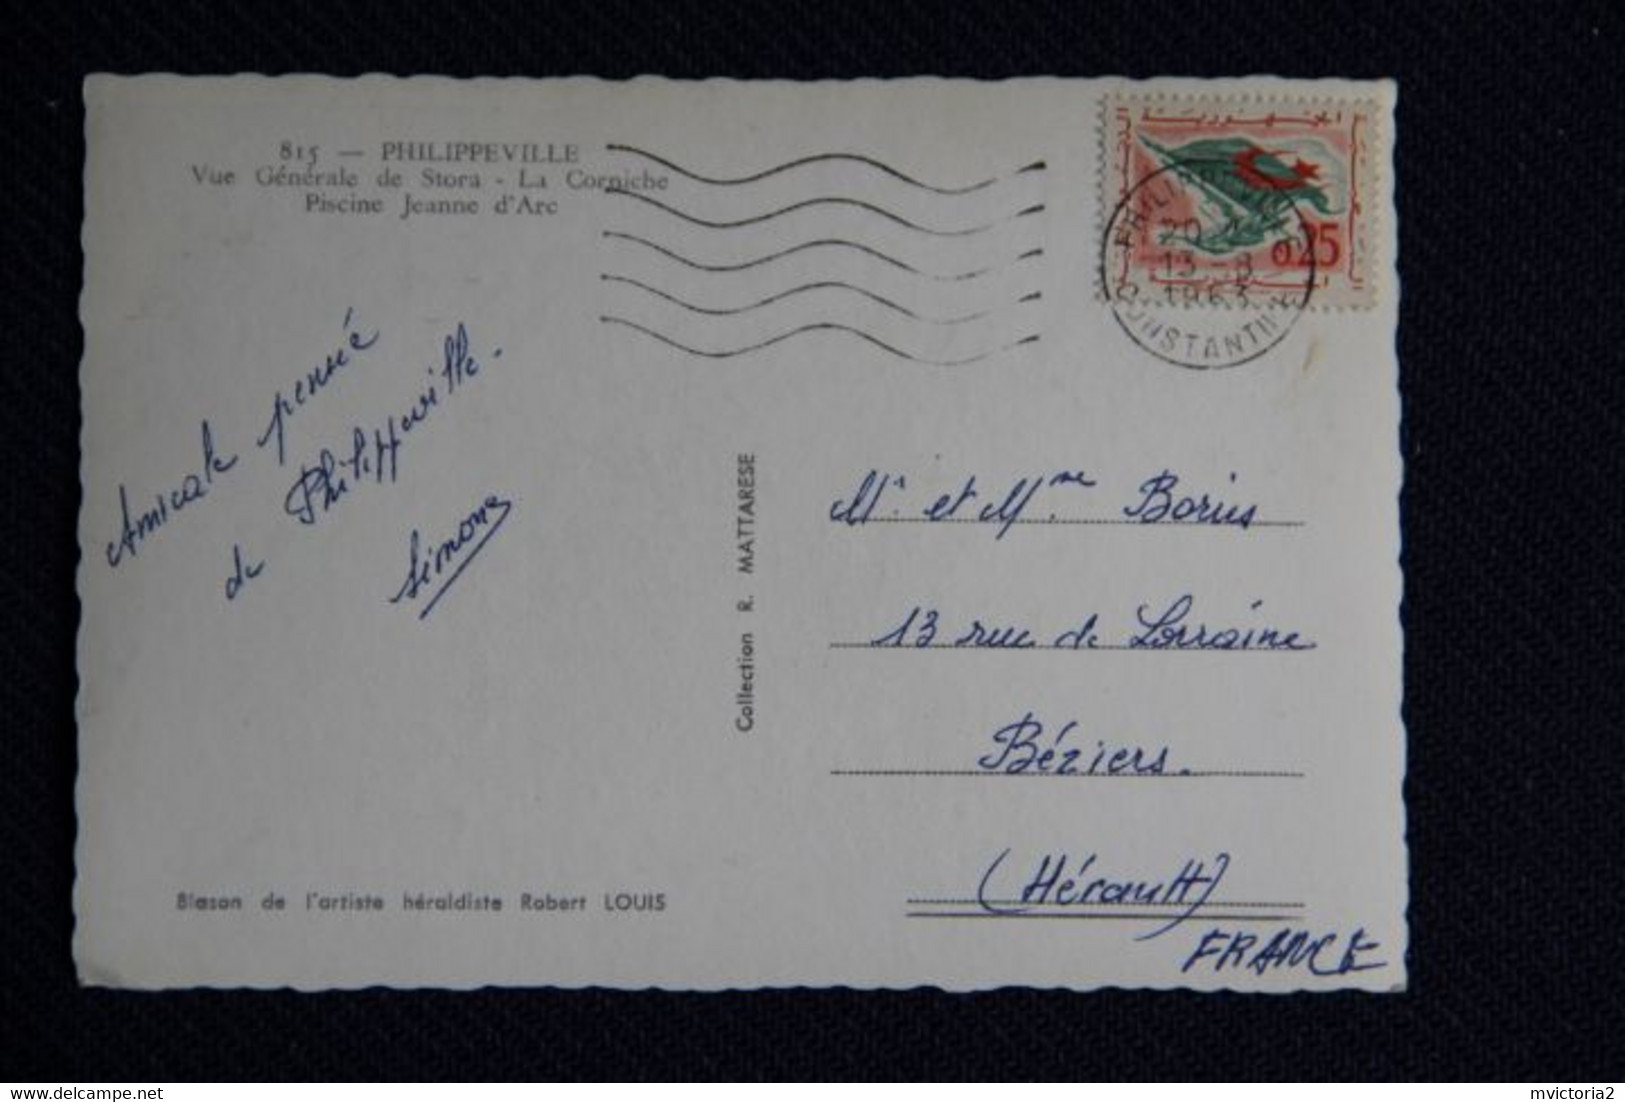 815 — PHILIPPEVILLE
Vue Générale de Stora - La Corniche
Piscine Jeanne d'Arc
Amicale pensée
de Philippeville.
Simone
Blason de l'artiste héraldiste Robert LOUIS
Collection R. MATTARESE
PHILIPPEVILLE
20 H
13 - 8
1963
CONSTANTINE
0,25
Mr. et Mme Borius
13 rue de Lorraine
Béziers.
(Hérault)
FRANCE
mvictoria2